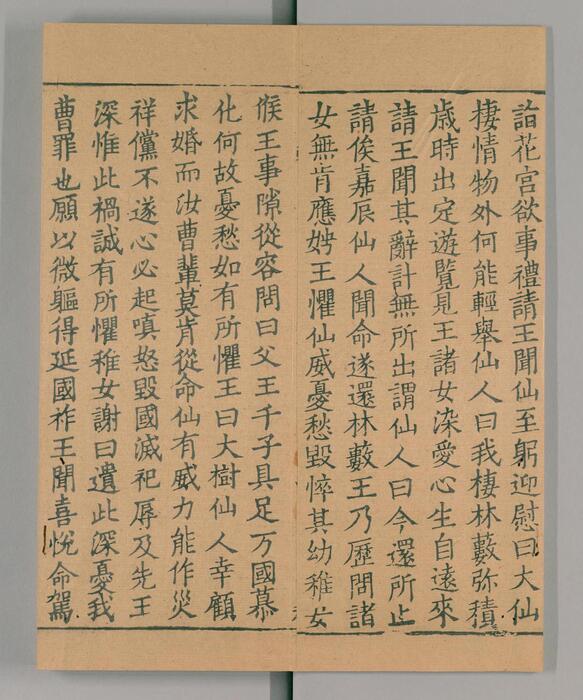 詣花宮欲事禮請王聞仙至躬迎慰曰大仙
棲情物外何能輕舉仙人曰我棲林藪弥積
歲時出定遊覽見王諸女染愛心生自遠來
請王聞其辭計無所出謂仙人曰今還所止
請俟嘉辰仙人聞命遂還林藪王乃歷問諸
女無肯應娉王懼仙威憂愁毀悴其幼稚女
候王事隙從容問曰父王千子具足万國慕
化何故憂愁如有所懼王曰大樹仙人幸顧
求婚而汝曹輩莫肯從命仙有威力能作災
祥儻不遂心必起嗔怒毀國滅祀辱及先王
深惟此禍誠有所懼稚女謝曰遺此深憂我
曹罪也願以微軀得延國祚王聞喜悅命駕